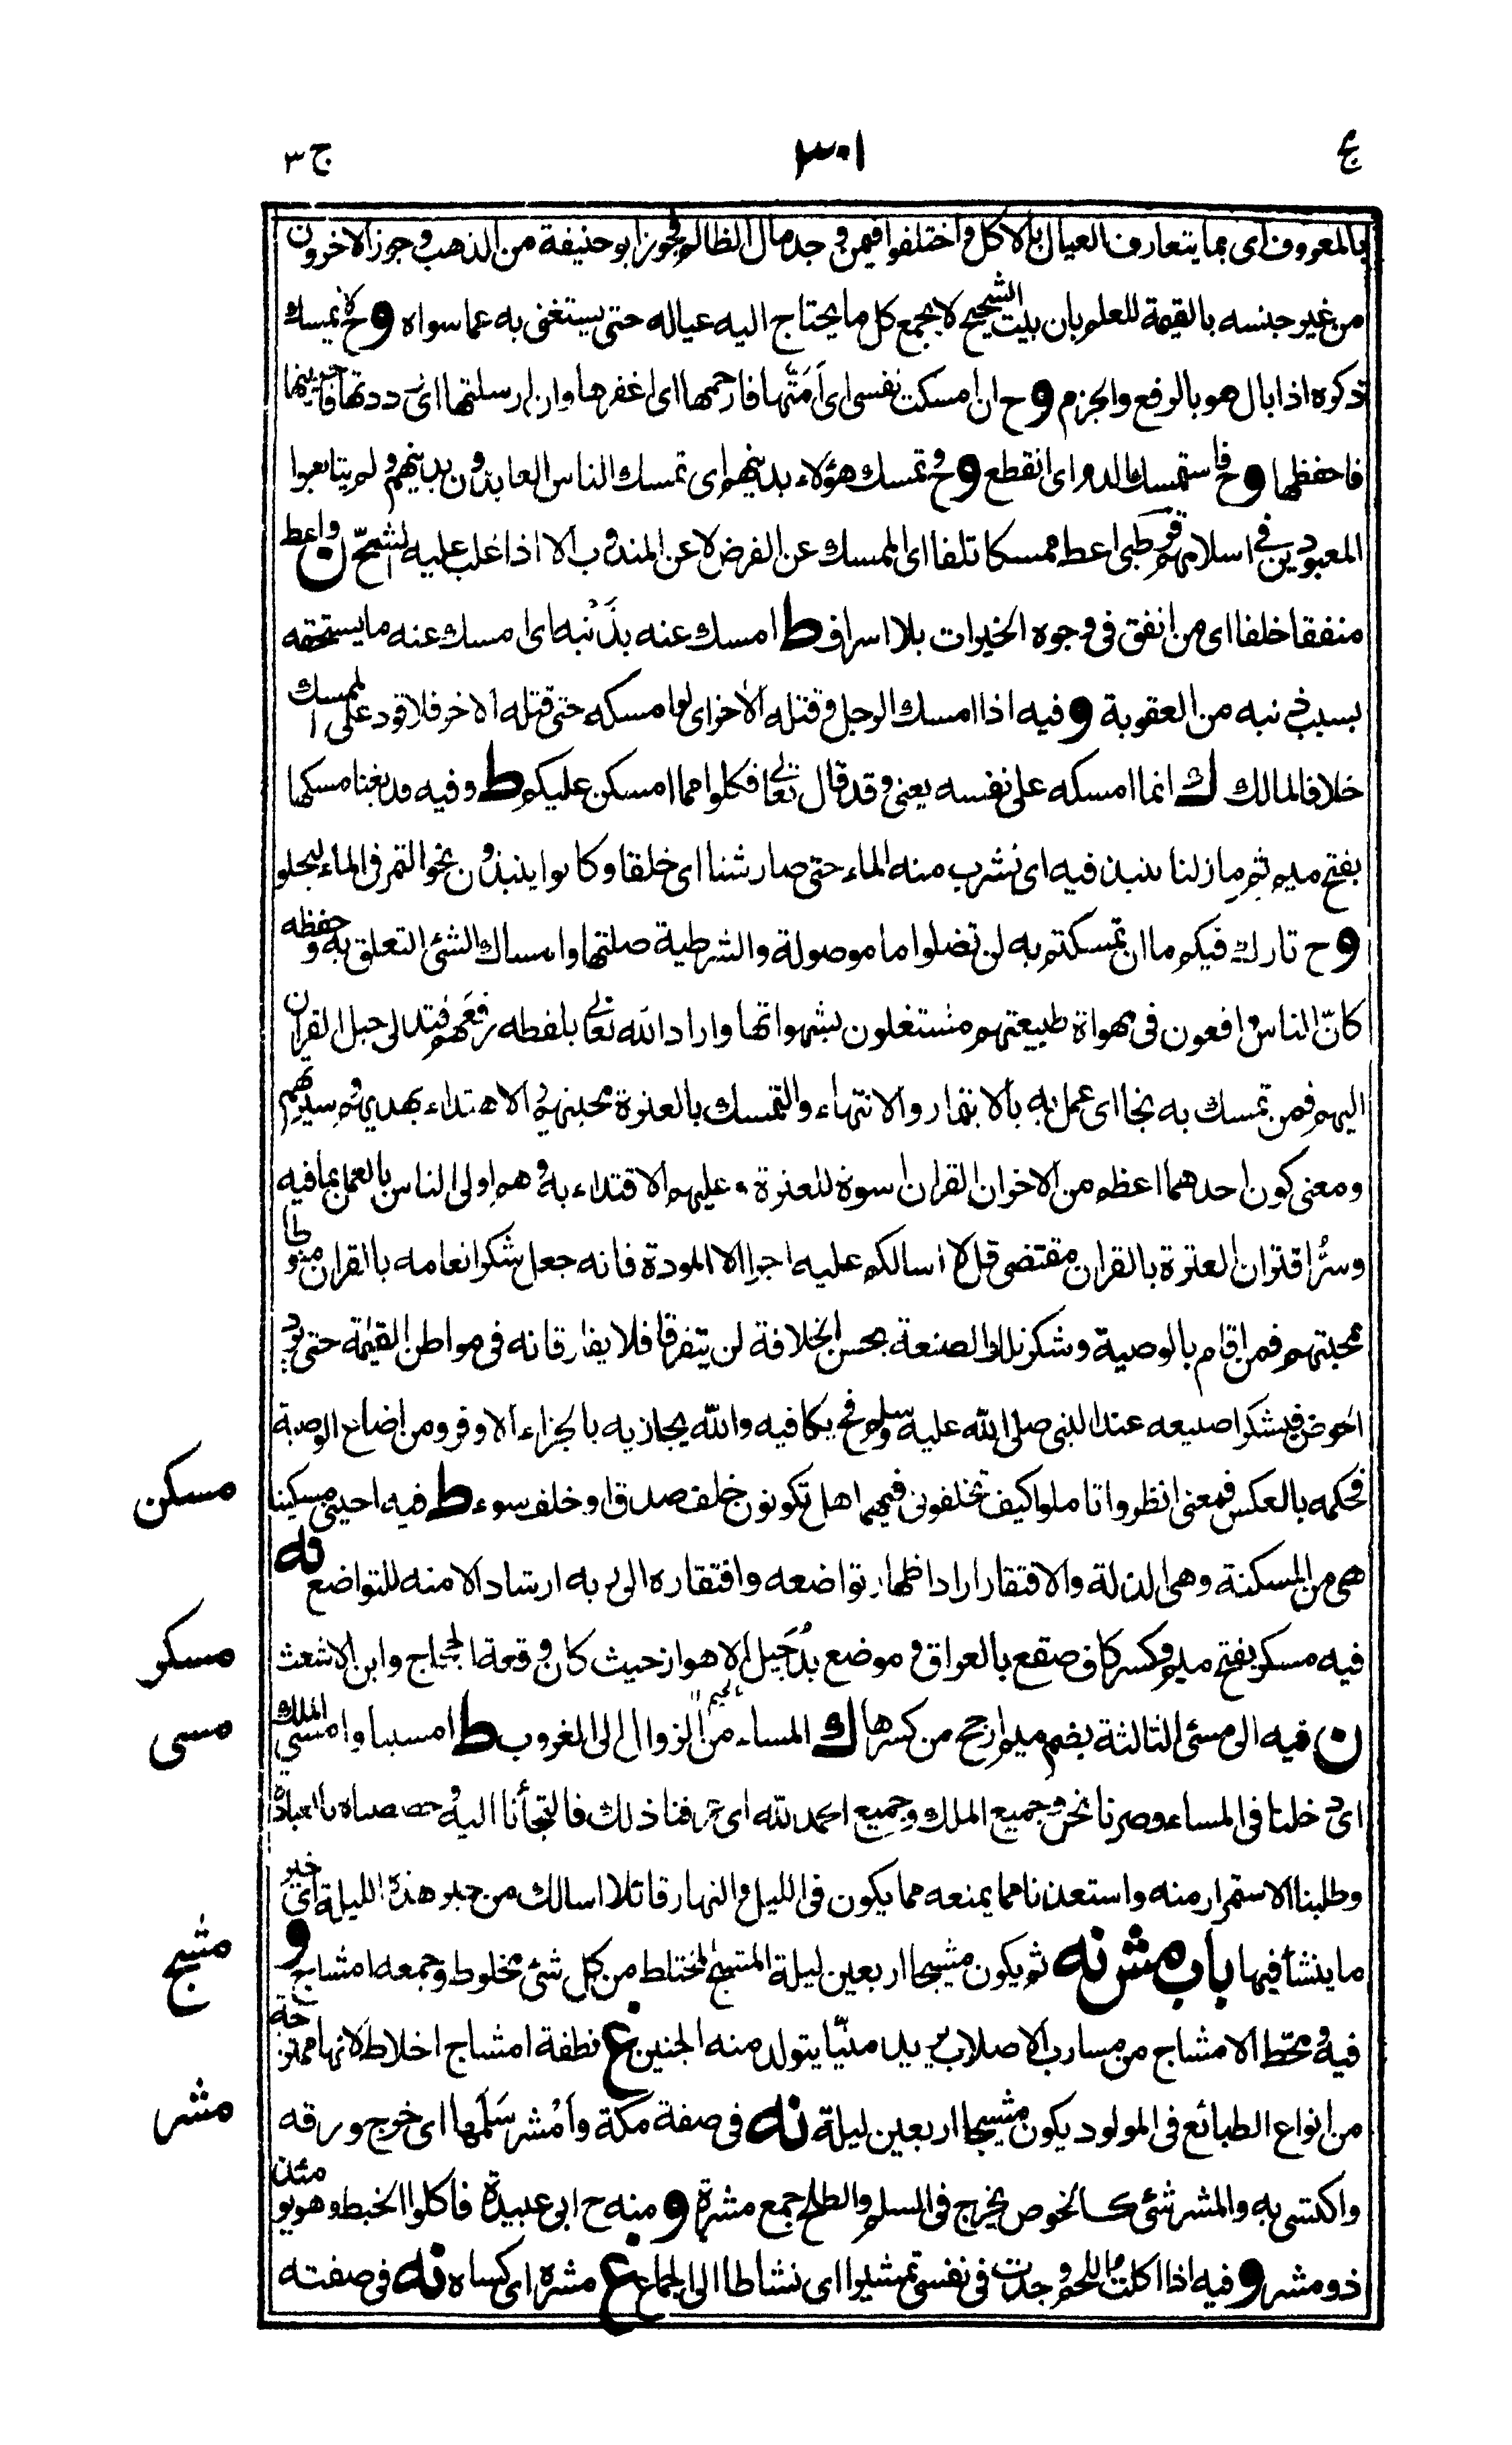 ع ٣٠١ ج ٣
بالمعروف اى بما يتعارف العيال بالاكل واختلفوا فيمن وجد مال الظالم فجوز ابو حنيفة من الذهب وجوز الاخرون
من غير جنسه بالقيمة للعلم بان بيت الشحيح لا يجمع كل ما يحتاج اليه عياله حتى يستغنى به عما سواه و ح لا يمسك
ذكره اذا بال هو بالرفع والجزم و ح ان امسكت نفسى اى اَمَتَّها فارحمها اى اغفرها وان ارسلتها اى رددتها
فاحفظها و ح فاستمسك الدم اى انقطع و ح وتمسك هؤلاء بدينهم اى تمسك الناس العابدون بدينهم ولم يتابعوا
المعبودين فى اسلامهم اعط ممسكا تلفا اى الممسك عن الفرض لا عن المندوب الا اذا غلب عليه الشحّ ن واعط
منفقا خلفا اى من انفق فى وجوه الخيرات بلا اسراف ط امسك عنه بذَنْبه اى امسك عنه ما يستحقه
بسبب ذنبه من العقوبة و فيه اذا امسك الرجل وقتله الأخر اى لو امسكه حتى قتله الاخر فلا قود على الممسك
خلافا لمالك ك انما امسكه على نفسه يعنى وقد قال تعالى فكلوا مما امسكن عليكم ط وفيه فدبغنا مسكها
بفتح ميم ثم ما زلنا ننبذ فيه اى نشرب منه الماء حتى صار شنا اى خلقا وكانوا ينبذون نحو التمر فى الماء ليحلو
و ح تارك فيكم ما ان تمسكتم به لن تضلوا ما موصولة والشرطية صلتها وامساك الشئ التعلق به وحفظه
كانّ الناس واقعون فى مهواة طبيعتهم مشتغلون بشهواتها واراد الله تعالى بلطفه رفعهم فتدلى حبل القران
اليهم فمن تمسك به نجا اى عمل به بالائتمار والانتهاء والتمسك بالعترة محبتهم والاهتداء بهديهم وسيرتهم
ومعنى كون احدهما اعظم من الاخر ان القران اسوة للعترة وعليهم الاقتداء به وهم اولى الناس بالعمل بما فيه
وسرُّ اقتران العترة بالقران مقتضى قل لا اسالكم عليه اجرا الا المودة فانه جعل شكر انعامه بالقران منوطا
بمحبتهم فمن اقام بالوصية وشكر تلك الصنعة بحسن الخلافة لن يتفرقا فلا يفارقانه فى مواطن القيٰمة حتى يرد
الحوض فيشكرا صنيعه عند النبى صلى الله عليه وسلم فح يكافيه والله يجازيه بالجزاء الاوفر ومن اضاع الوصية
فحكمه بالعكس فمعنى انظروا تاملوا كيف تخلفونى فيهما هل تكونون خلف صدق او خلف سوء ط فيه احينى مسكينا
مسكن
هى من المسكنة وهى الذلة والافتقار اراد اظهار تواضعه وافتقاره الى ربه ارشادا لامته للتواضع نه
فيه مسكر بفتح ميم وكسر كاف صقع بالعراق و موضع بدُجَيل الاهواز حيث كان وقعة الحجاج وابن الاشعث
مسكر
ن فيه الى مسئ الثالثة بضم ميم ارجح من كسرها ك المساء من الزوال الى الغروب ط امسينا وامسى الملك
مسى
اى دخلنا فى المساء وصرنا نحن وجميع الملك وجميع الحمد لله اى عرفنا ذلك فالتجأنا اليه وخصصناه بالعبادة
وطلبنا الاستمرار منه واستعذنا مما يمنعه مما يكون فى الليل والنهار قائلا اسالك من خير هذه الليلة اى خير
ما ينشأ فيها باب مش نه ثم يكون مشيجا اربعين ليلة المشيج المختلط من كل شئ مخلوط وجمعه امشاج و
مشج
فيه ومحَط الامشاج من مسارب الاصلاب يريد منيّا يتولد منه الجنين غ نطفة امشاج اخلاط لانها ممتزجة
من انواع الطبائع فى المولود يكون مشيجا اربعين ليلة نه فى صفة مكة واَمْشر سَلَمها اى خرج ورقه
مشر
واكتسى به والمشر شئ كالخوص يخرج فى السلم والطلح جمع مشرة و منه ح ابى عبيدة فاكلوا الخبط وهو يومئذ
ذو مشر و فيه اذا اكلتُ اللحم وجدت فى نفسى تمشيرا اى نشاطا الى الجماع غ مشره اى كساه نه فى صفته